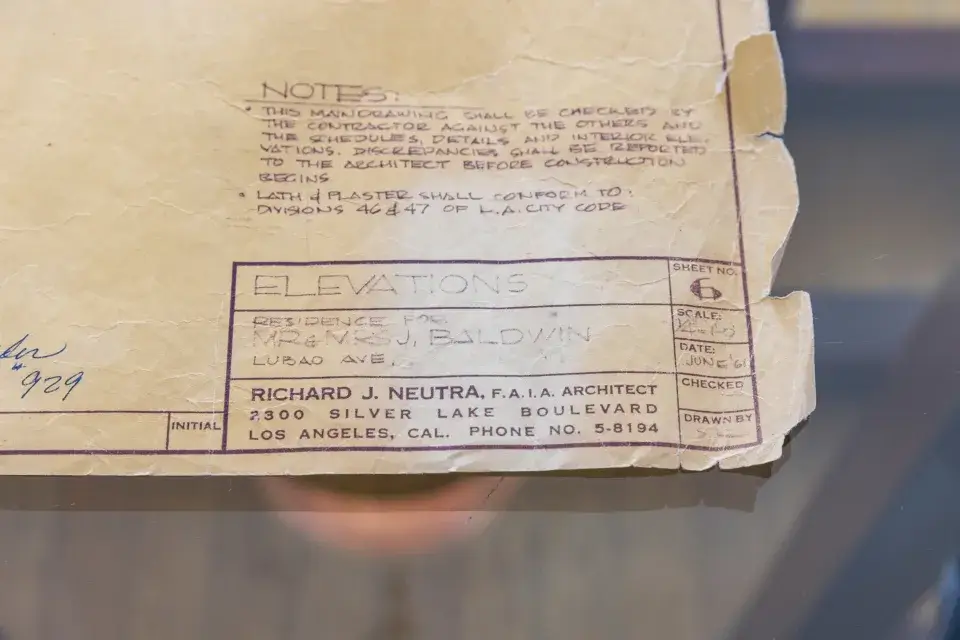 NOTES:
• THIS MAIN DRAWING SHALL BE CHECKED BY
THE CONTRACTOR AGAINST THE OTHERS AND
THE SCHEDULES, DETAILS AND INTERIOR ELE-
VATIONS. DISCREPANCIES SHALL BE REPORTED
TO THE ARCHITECT BEFORE CONSTRUCTION
BEGINS
• LATH & PLASTER SHALL CONFORM TO:
DIVISIONS 46 & 47 OF L.A. CITY CODE
ELEVATIONS
RESIDENCE FOR
MR & MRS J. BALDWIN
LUBAO AVE.
RICHARD J. NEUTRA, F.A.I.A. ARCHITECT
2300 SILVER LAKE BOULEVARD
LOS ANGELES, CAL. PHONE NO. 5-8194
SHEET NO.
6
SCALE:
DATE:
JUNE '61
CHECKED
DRAWN BY
INITIAL
"929